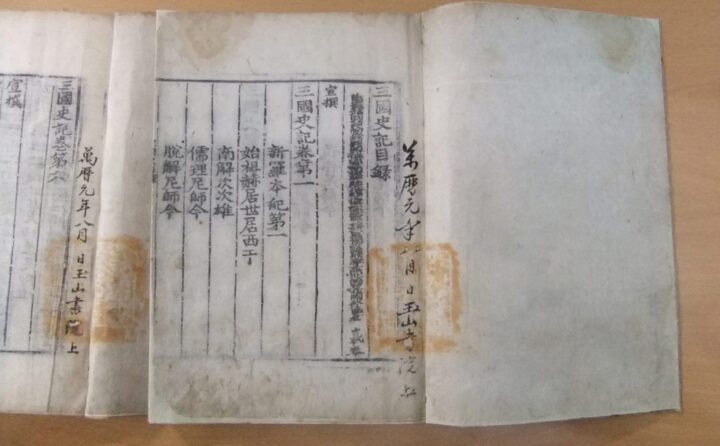 曆元年八月 日玉山書院
三國史記目錄
宣撰
三國史記卷第一
新羅本紀第一
始祖赫居世居西干
南解次次雄
儒理尼師今
脫解尼師今
萬曆元年八月 日玉山書院上
三國史記卷第
宣撰